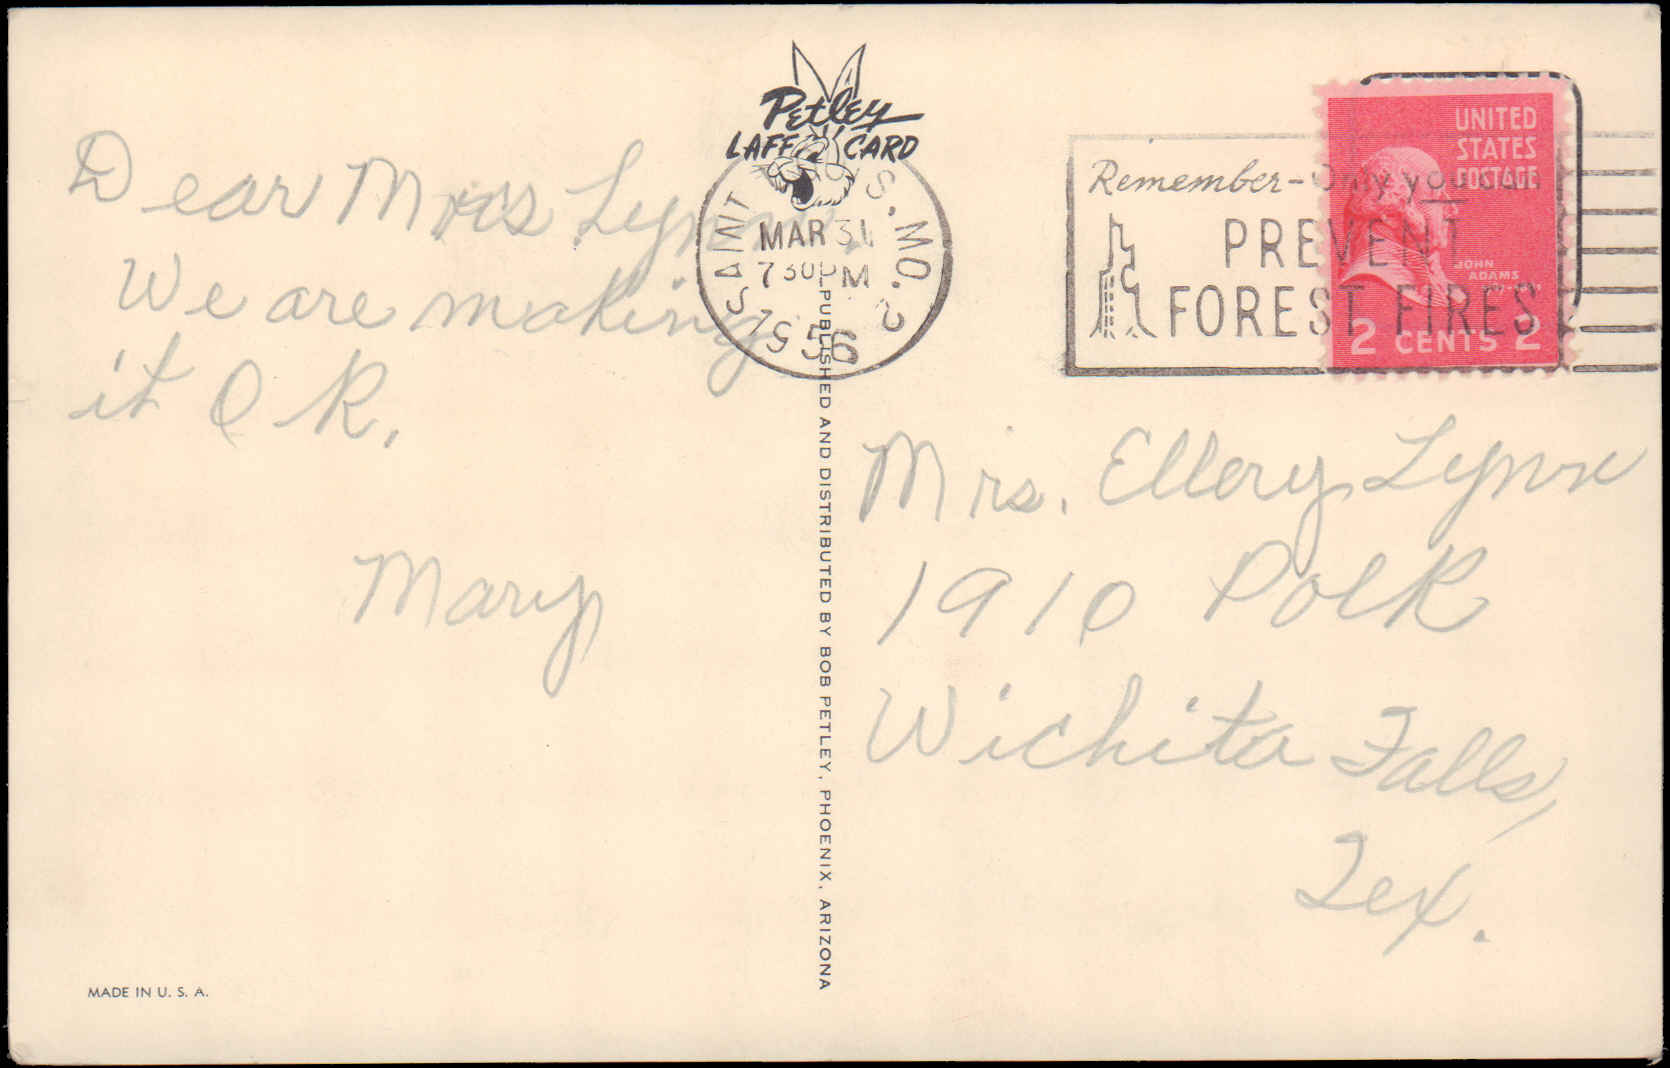 Petley
LAFF CARD
Dear Mrs Lynn
We are making
it O K.
Mary
SAINT LOUIS, MO. 2
MAR 31
730 PM
1956
Remember - Only you can
PREVENT
FOREST FIRES
UNITED
STATES
POSTAGE
JOHN
ADAMS
2 CENTS 2
Mrs. Ellery Lynn
1910 Polk
Wichita Falls,
Tex.
PUBLISHED AND DISTRIBUTED BY BOB PETLEY, PHOENIX, ARIZONA
MADE IN U. S. A.